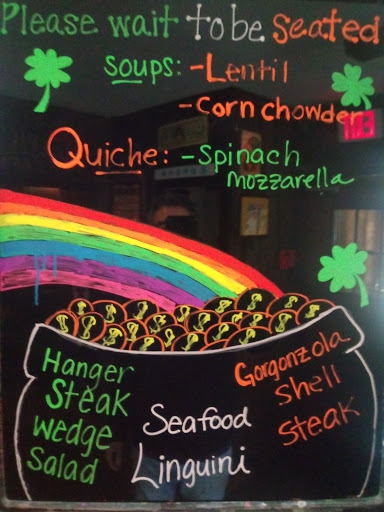 Please wait to be seated
Soups: - Lentil
- Corn chowder
Quiche: - Spinach
mozzarella
Hanger
Steak
wedge
Salad
Seafood
Linguini
Gorgonzola
shell
steak